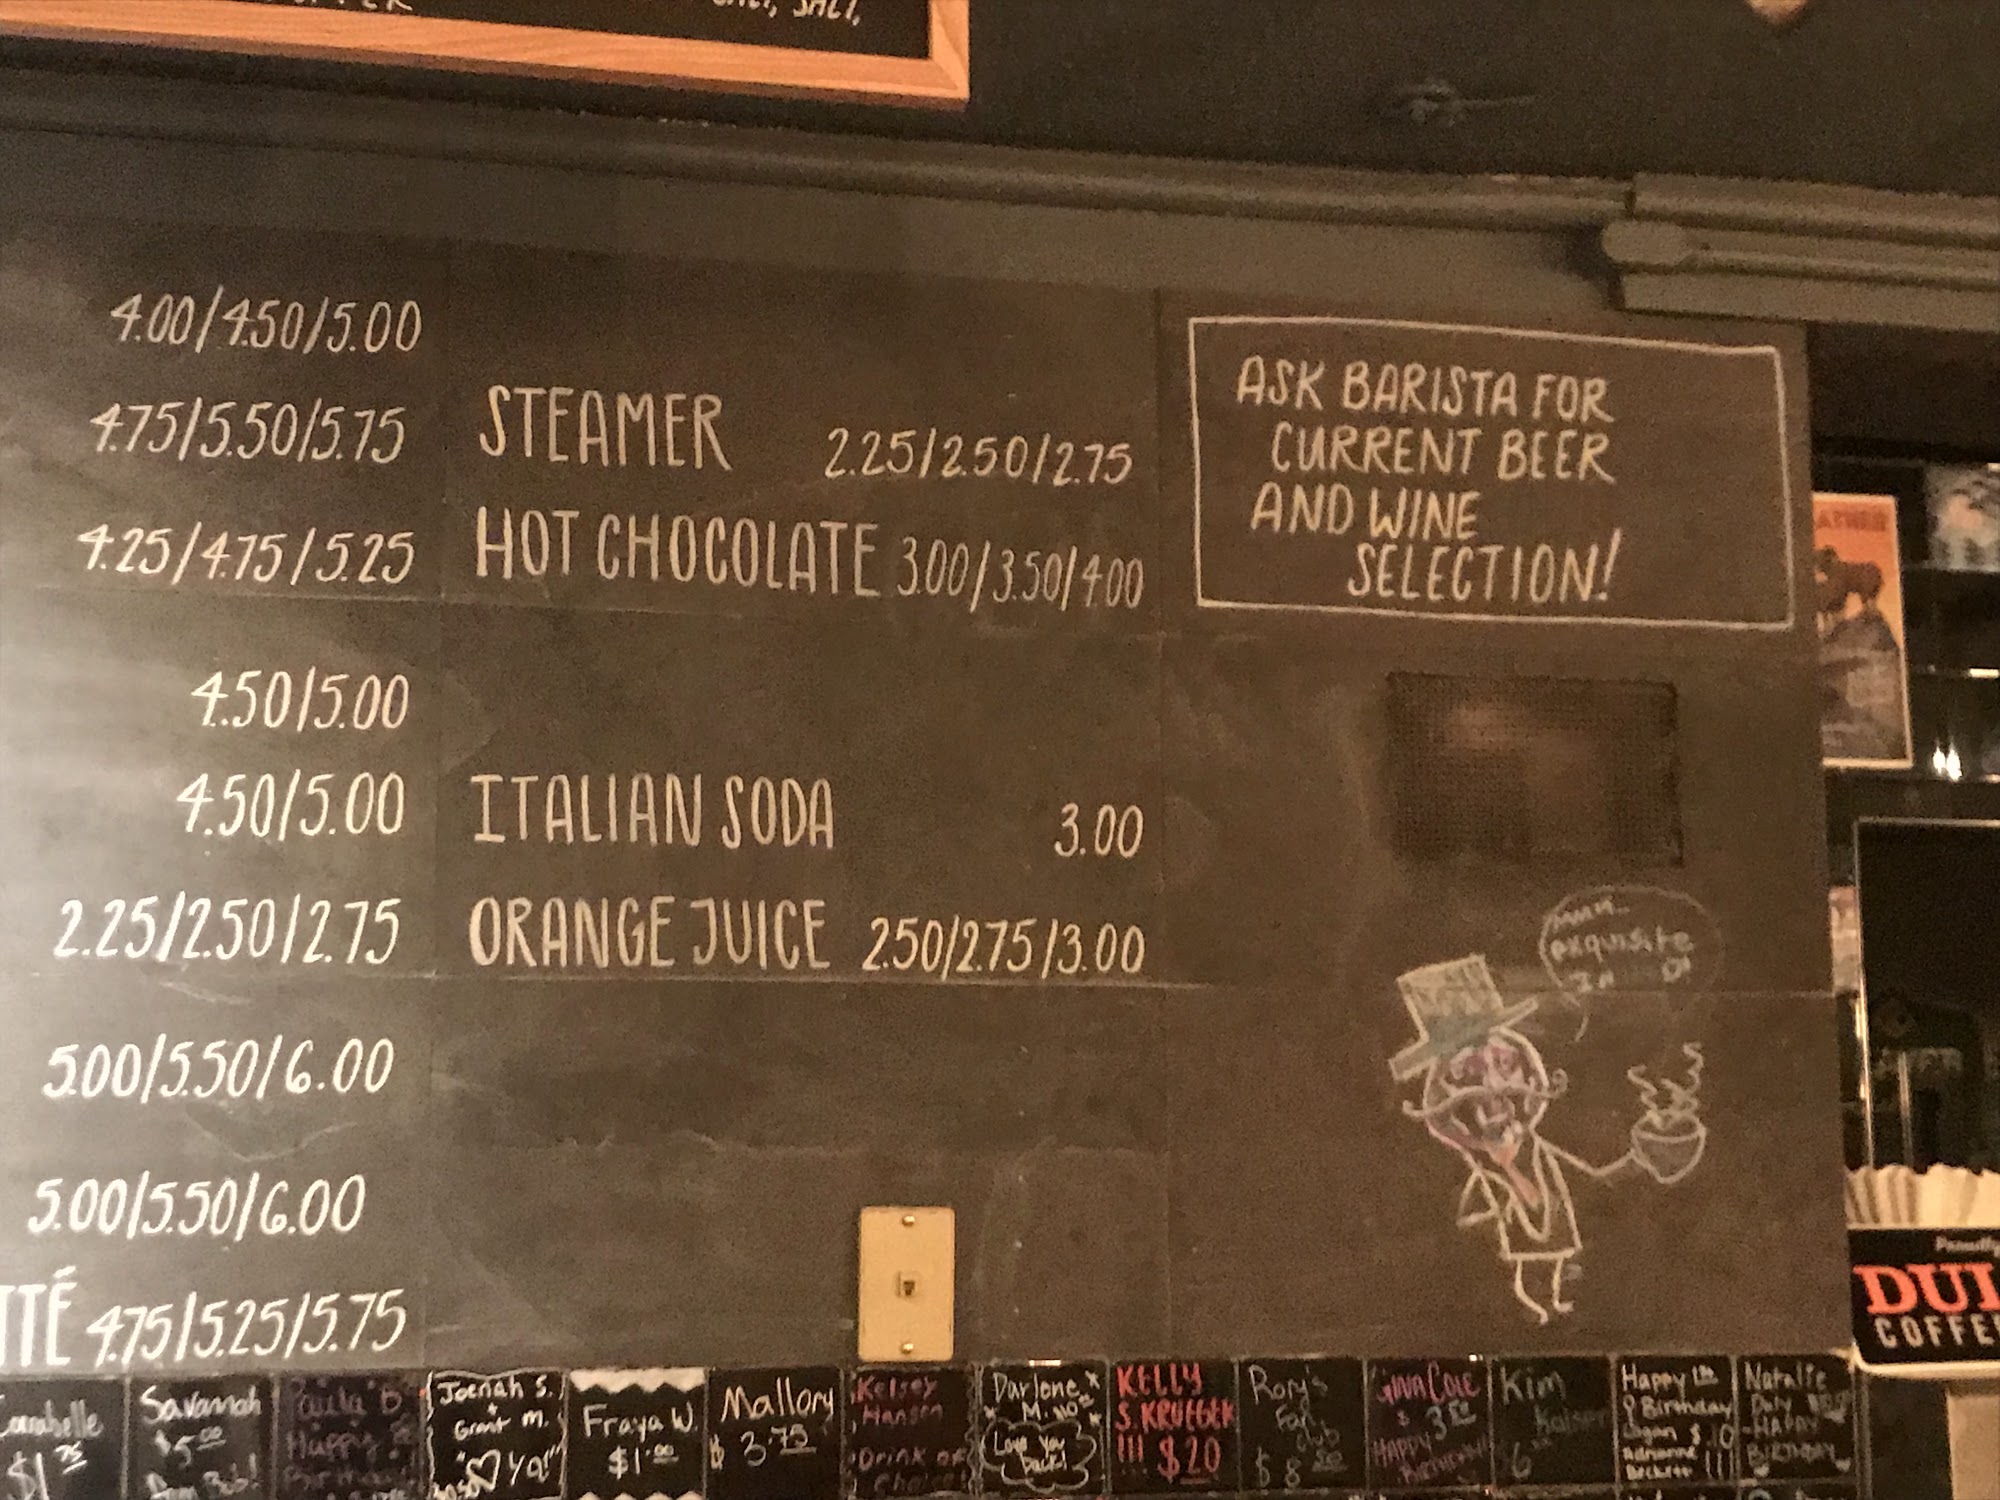 4.00/4.50/5.00
4.75/5.50/5.75
4.25/4.75/5.25
4.50/5.00
4.50/5.00
2.25/2.50/2.75
5.00/5.50/6.00
5.00/5.50/6.00
TTÉ 4.75/5.25/5.75
STEAMER 2.25/2.50/2.75
HOT CHOCOLATE 3.00/3.50/4.00
ITALIAN SODA 3.00
ORANGE JUICE 2.50/2.75/3.00
ASK BARISTA FOR
CURRENT BEER
AND WINE
SELECTION!
exquisite
DUI
COFFE
Savannah
$5.00
Grant M.
Fraya W.
$1.00
Mallory
$3.75
Kelsey
Hansen
Drink of
Darlene
Love you
back!
KELLY
S. KRUEGER
!!! $20
Rory's
Fan
club
$8
Gina Cole
$3.50
HAPPY
BIRTHDAY
Kim
Kaiser
Happy
Birthday
Natalie
HAPPY
BIRTHDAY